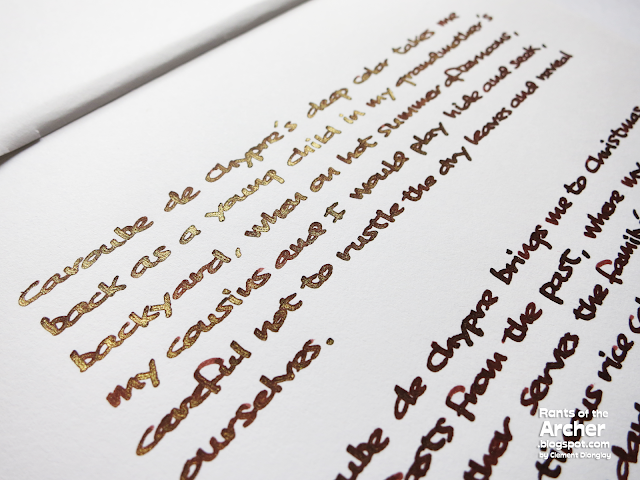 Caroube de Chypre's deep color takes me
back as a young child in my grandmother's
backyard, when on hot summer afternoons,
my cousins and I would play hide and seek,
careful not to rustle the dry leaves and reveal
ourselves.
de Chypre brings me to Christmas
from the past, where my
serves the family
rice
Rants of the
Archer
.blogspot.com
by Clement Dionglay